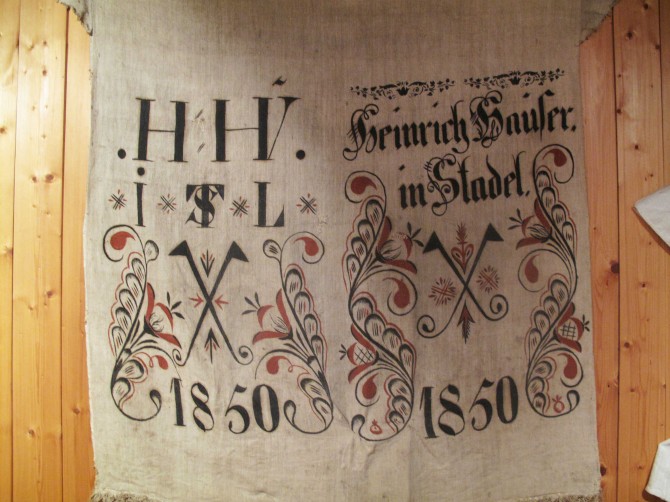 .H:HV.
i ST L
1850
Heinrich Hauſer.
in Stadel.
1850